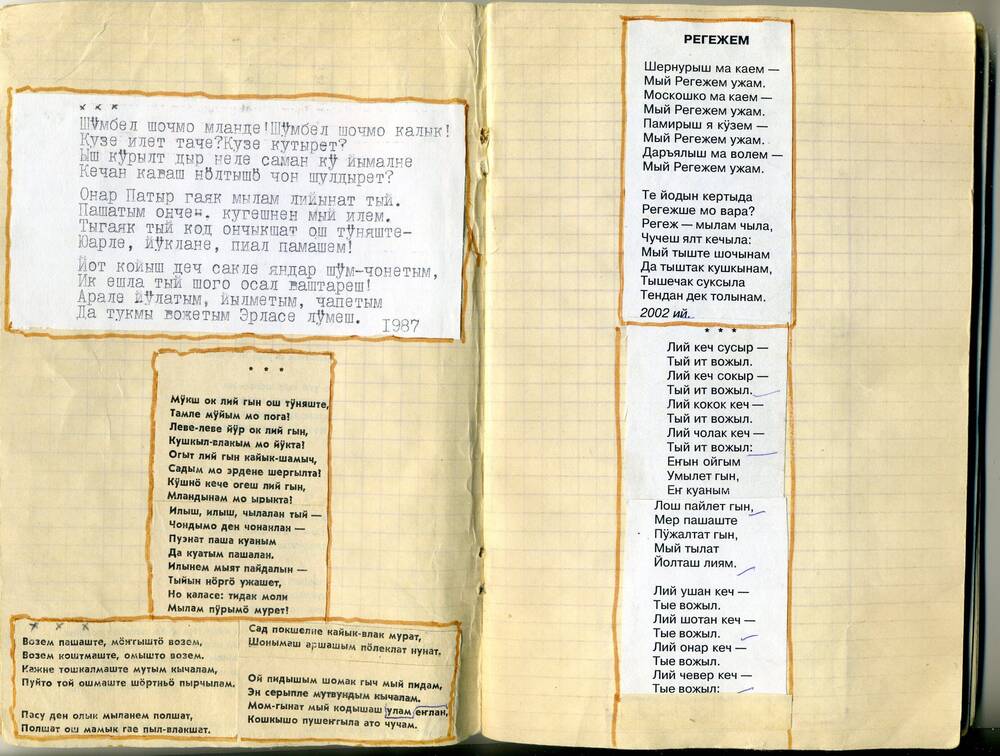 * * *
Шӱмбел шочмо мланде! Шӱмбел шочмо калык!
Кузе илет таче? Кузе кутырет?
Ыш кӱрылт дыр неле саман кӱ йымалне
Кечан каваш нӧлтышӧ чон шулдырет?
Онар Патыр гаяк мылам лийынат тый.
Пашатым ончен. кугешнен мый илем.
Тыгаяк тый код ончыкшат ош тӱняште-
Юарле, йӱклане, пиал памашем!
Йот койыш деч сакле яндар шӱм-чонетым,
Ик ешла тый шого осал ваштареш!
Арале йӱлатым, йылметым, чапетым
Да тукмы вожетым Эрласе лӱмеш. 1987
* * *
Мӱкш ок лий гын ош тӱняште,
Тамле мӱйым мо пога?
Леве-леве йӱр ок лий гын,
Кушкыл-влакым мо йӱкта?
Огыт лий гын кайык-шамыч,
Садым мо эрдене шергылта?
Кӱшнӧ кече огеш лий гын,
Мландынам мо ырыкта?
Илыш, илыш, чылалан тый —
Чондымо ден чонанлан —
Пуэнат паша куаным
Да куатым пашалан.
Илынем мыят пайдалын —
Тыйын нӧргӧ ужашет,
Но каласе: тидак моли
Мылам пӱрымӧ мурет?
* * *
Возем пашаште, мӧҥгыштӧ возем,
Возем коштмаште, омышто возем.
Кажне тошкалмаште мутым кычалам,
Пуйто той ошмаште шӧртньӧ пырчылам.
Пасу ден олык мыланем полшат,
Полшат ош мамык гае пыл-влакшат.
Сад покшелне кайык-влак мурат,
Шонымаш аршашым пӧлеклат нунат,
Ой пидышым шомак гыч мый пидам,
Эн серыпле мутвундым кычалам.
Мом-гынат мый кодышаш улам еҥлан,
Кошкышо пушеҥгыла ато чучам.
РЕГЕЖЕМ
Шернурыш ма каем —
Мый Регежем ужам.
Москошко ма каем —
Мый Регежем ужам.
Памирыш я кӱзем —
Мый Регежем ужам.
Даръялыш ма волем —
Мый Регежем ужам.
Те йодын кертыда
Регежше мо вара?
Регеж — мылам чыла,
Чучеш ялт кечыла:
Мый тыште шочынам
Да тыштак кушкынам,
Тышечак суксыла
Тендан дек толынам.
2002 ий.
* * *
Лий кеч сусыр —
Тый ит вожыл.
Лий кеч сокыр —
Тый ит вожыл.
Лий кокок кеч —
Тый ит вожыл.
Лий чолак кеч —
Тый ит вожыл:
Еҥын ойгым
Умылет гын,
Еҥ куаным
Лош пайлет гын,
Мер пашаште
Пӱжалтат гын,
Мый тылат
Йолташ лиям.
Лий ушан кеч —
Тые вожыл.
Лий шотан кеч —
Тые вожыл.
Лий онар кеч —
Тые вожыл.
Лий чевер кеч —
Тые вожыл: